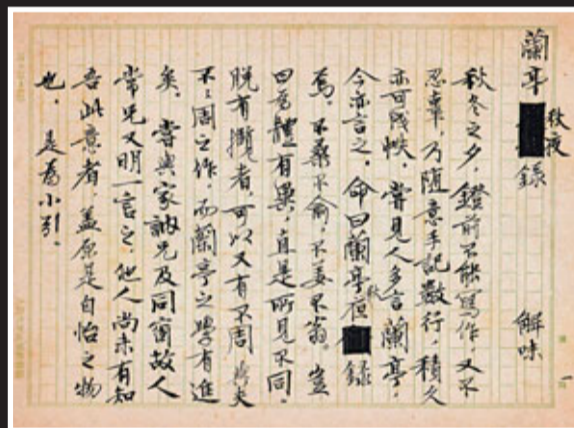 蘭亭秋夜錄 解味
秋冬之夕，鐙前不能寫作，又不
忍辜，乃隨意手記數行，積久
亦可成帙。嘗見人多言蘭亭，
今亦言之。命曰蘭亭秋夜錄
焉。不桑不俞，不姜不翁。豈
曰體有異，直是所見不同。
脫有者，可以又有不周
不〻周之作，而蘭亭之學有進
矣。嘗與家訥兄及同窗故人
常兄又明一言之，他人尚未有知
吾此意者，蓋原是自怡之物
也。是為小引。